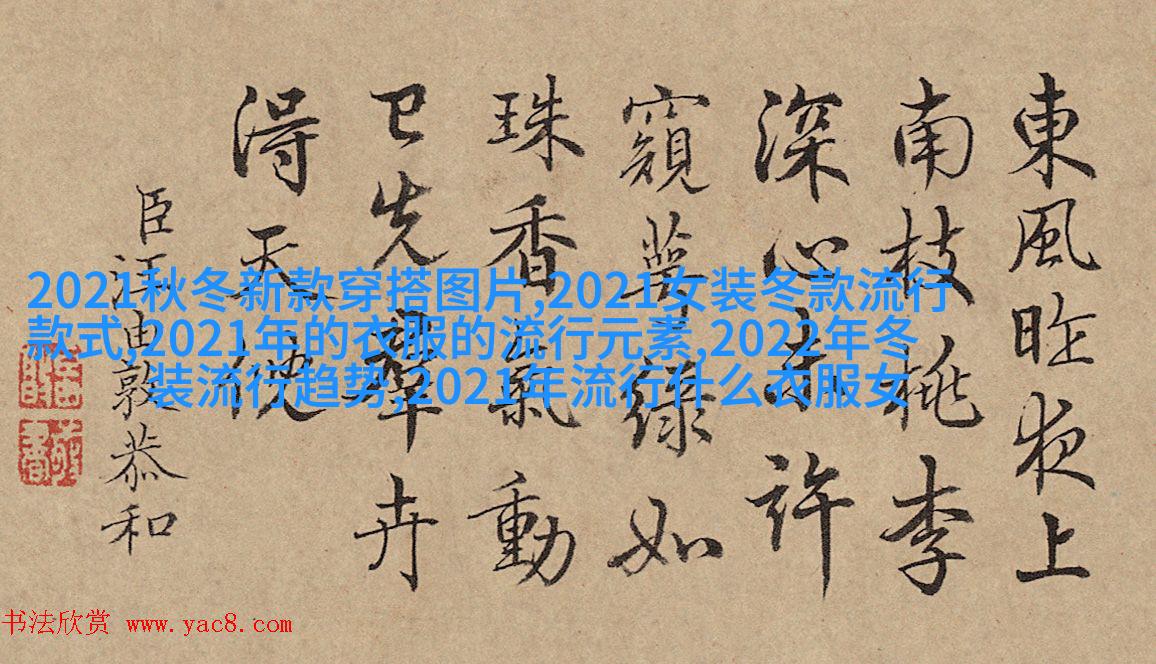 東風昨夜上
南枝桃李
深心許
窺萼綠如
珠香氣動
已先羣卉
得天
臣汪由敦恭和
2021秋冬新款穿搭图片,2021女装冬款流行
款式,2021年的衣服的流行元素,2022年冬
装流行趋势,2021年流行什么衣服女
书法欣赏 www.yac8.com